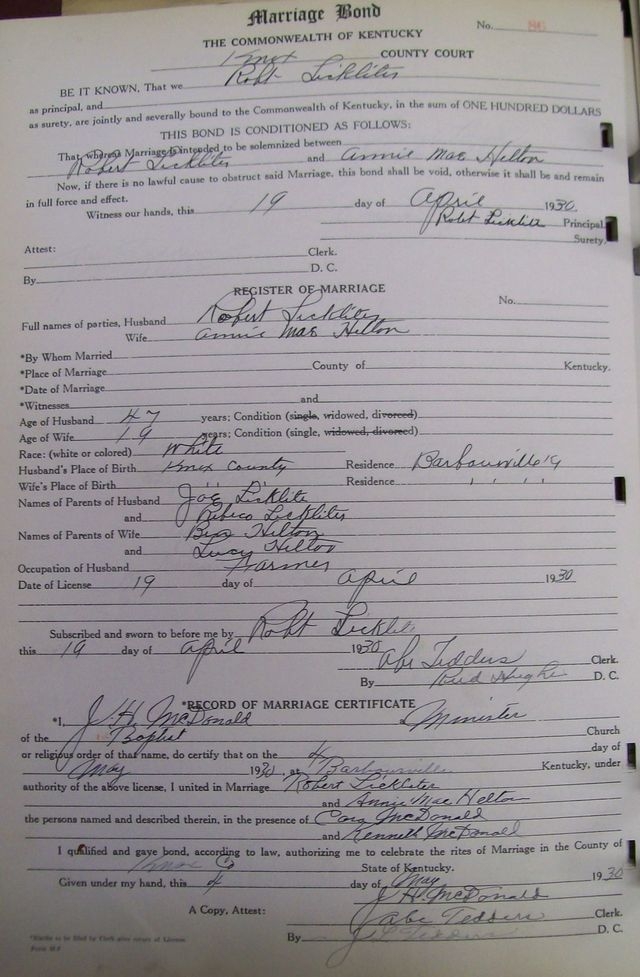 Marriage Bond
No. 86
THE COMMONWEALTH OF KENTUCKY
Knox COUNTY COURT
BE IT KNOWN, That we Robt Licklites
as principal, and
as surety, are jointly and severally bound to the Commonwealth of Kentucky, in the sum of ONE HUNDRED DOLLARS
THIS BOND IS CONDITIONED AS FOLLOWS:
That, whereas Marriage is intended to be solemnized between
Robert Licklites and Annie Mae Helton
Now, if there is no lawful cause to obstruct said Marriage, this bond shall be void, otherwise it shall be and remain
in full force and effect.
Witness our hands, this 19 day of April 1930
Robt Licklite Principal
Surety.
Attest: Clerk.
By D. C.
REGISTER OF MARRIAGE
No.
Full names of parties, Husband Robert Licklites
Wife Annie Mae Helton
*By Whom Married
*Place of Marriage County of Kentucky.
*Date of Marriage
*Witnesses and
Age of Husband 47 years; Condition (single, widowed, divorced)
Age of Wife 19 years; Condition (single, widowed, divorced)
Race: (white or colored) White
Husband's Place of Birth Knox County Residence Barbourville Ky
Wife's Place of Birth " " Residence " " "
Names of Parents of Husband Joe Licklite
and Licklites
Names of Parents of Wife Helton
and Lucy Helton
Occupation of Husband Farmer
Date of License 19 day of April 1930
Subscribed and sworn to before me by Robt Licklite
this 19 day of April 1930
Abe Tedders Clerk.
By D. C.
*RECORD OF MARRIAGE CERTIFICATE
*I, J. H. McDonald Minister
of the Baptist Church
or religious order of that name, do certify that on the 4 day of
May 1930, at Barbourville Kentucky, under
authority of the above license, I united in Marriage Robert Lickliter
and Annie Mae Helton
the persons named and described therein, in the presence of Cora McDonald
and Kenneth McDonald
I qualified and gave bond, according to law, authorizing me to celebrate the rites of Marriage in the County of
Knox Co State of Kentucky.
Given under my hand, this 4 day of May 1930
J H McDonald
A Copy, Attest: Abe Tedders Clerk.
By Tedders D. C.
*Blanks to be filed by Clerk after return of License